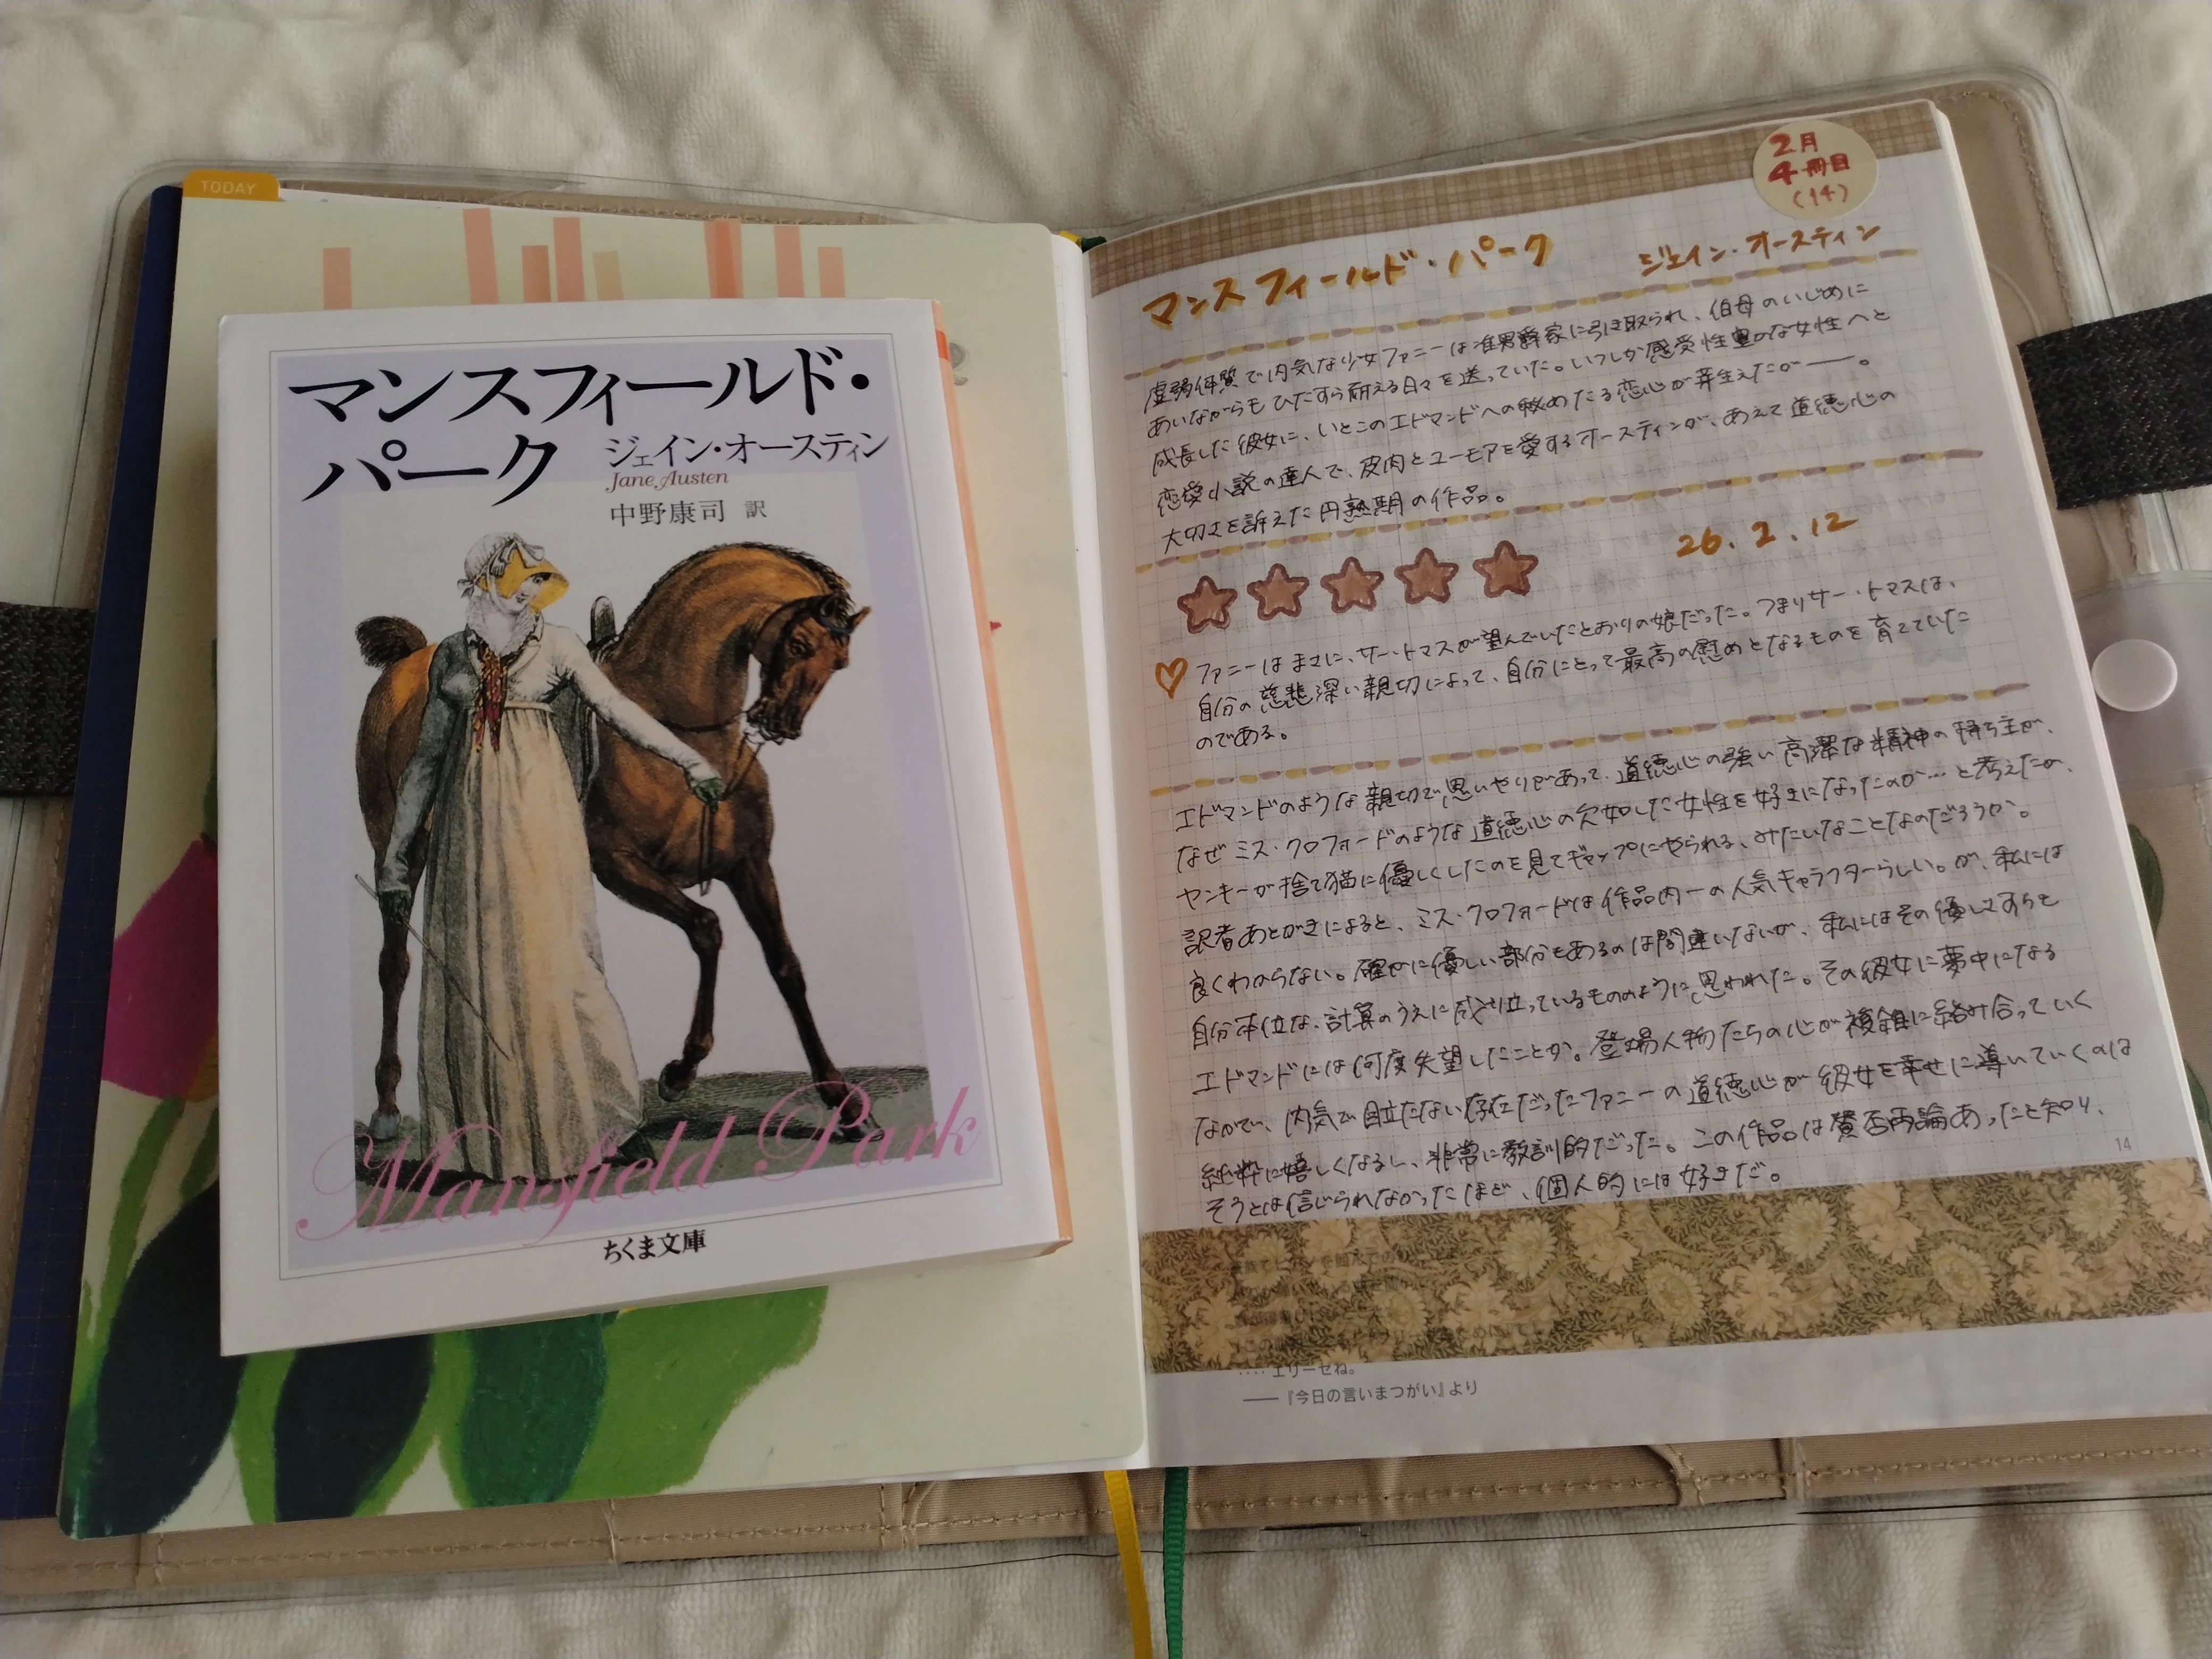 TODAY
マンスフィールド・
パーク
ジェイン・オースティン
Jane Austen
中野康司 訳
Mansfield Park
ちくま文庫
2月
4冊目
(14)
マンスフィールド・パーク ジェイン・オースティン
虚弱体質で内気な少女ファニーは准男爵家に引き取られ、伯母のいじめに
あいながらもひたすら耐える日々を送っていた。いつしか感受性豊かな女性へと
成長した彼女に、いとこのエドマンドへの秘めたる恋心が芽生えたが――。
恋愛小説の達人で、皮肉とユーモアを愛するオースティンが、あえて道徳心の
大切さを訴えた円熟期の作品。
26.2.12
ファニーはまさに、サー・トマスが望んでいたとおりの娘だった。つまりサー・トマスは、
自分の慈悲深い親切によって、自分にとって最高の慰めとなるものを育てていた
のである。
エドマンドのような親切で思いやりがあって、道徳心の強い高潔な精神の持ち主が、
なぜミス・クロフォードのような道徳心の欠如した女性を好きになったのか…と考えたが、
ヤンキーが捨て猫に優しくしたのを見てギャップにやられる、みたいなことなのだろうか。
訳者あとがきによると、ミス・クロフォードは作品内一の人気キャラクターらしい。が、私には
良くわからない。確かに優しい部分もあるのは間違いないが、私にはその優しさすらも
自分本位な、計算のうえに成り立っているもののように思われた。その彼女に夢中になる
エドマンドには何度失望したことか。登場人物たちの心が複雑に絡み合っていく
なかで、内気で目立たない存在だったファニーの道徳心が彼女を幸せに導いていくのは
純粋に嬉しくなるし、非常に教訓的だった。この作品は賛否両論あったと知り、
そうとは信じられなかったほど、個人的には好きだ。
14
‥‥エリーゼね。
――『今日の言いまつがい』より